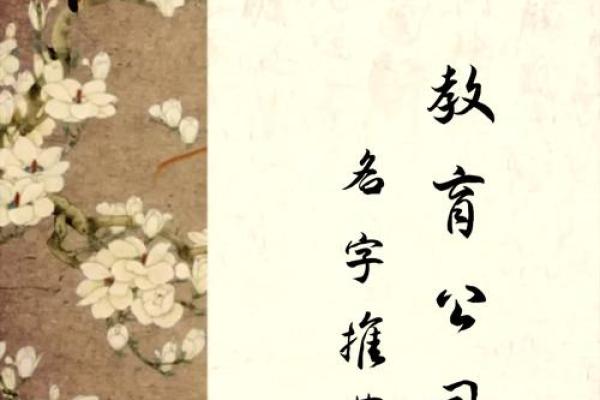 教育公司
名字推